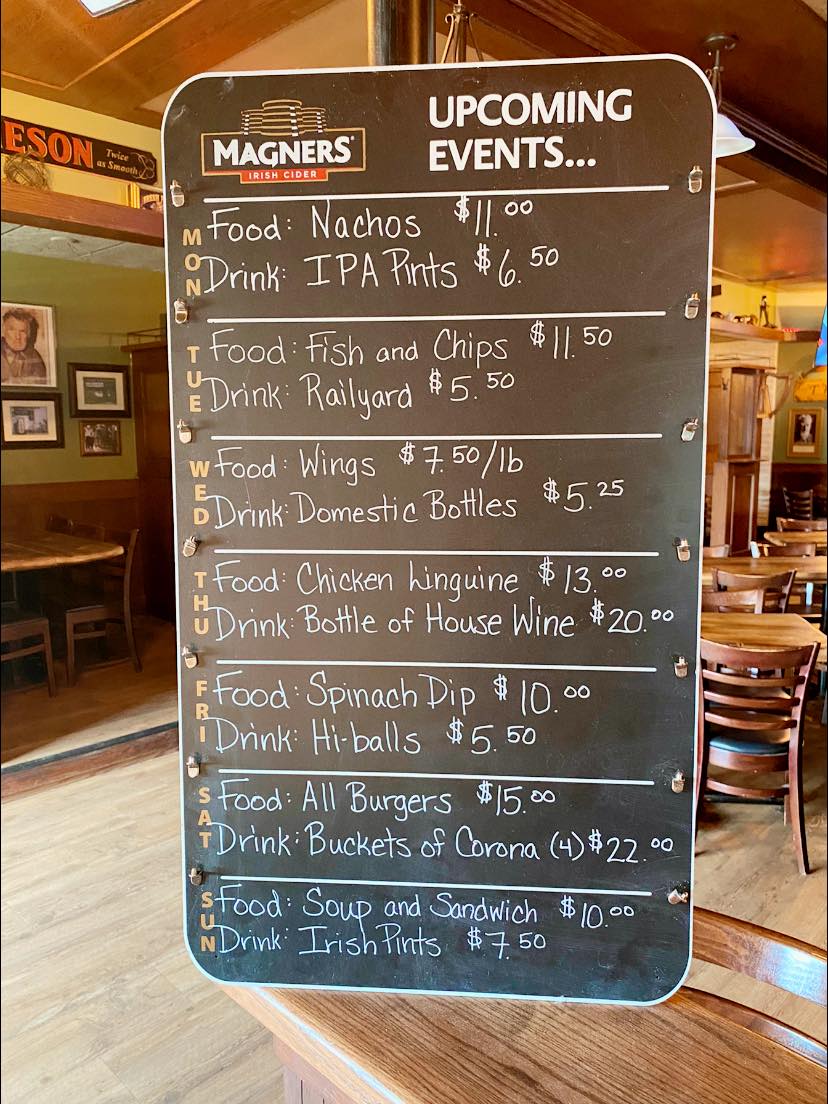 ESON Twice
as Smooth
MAGNERS®
IRISH CIDER
UPCOMING
EVENTS...
MON
Food: Nachos $11.00
Drink: IPA Pints $6.50
TUE
Food: Fish and Chips $11.50
Drink: Railyard $5.50
WED
Food: Wings $7.50/lb
Drink: Domestic Bottles $5.25
THU
Food: Chicken Linguine $13.00
Drink: Bottle of House Wine $20.00
FRI
Food: Spinach Dip $10.00
Drink: Hi-balls $5.50
SAT
Food: All Burgers $15.00
Drink: Buckets of Corona (4) $22.00
SUN
Food: Soup and Sandwich $10.00
Drink: Irish Pints $7.50